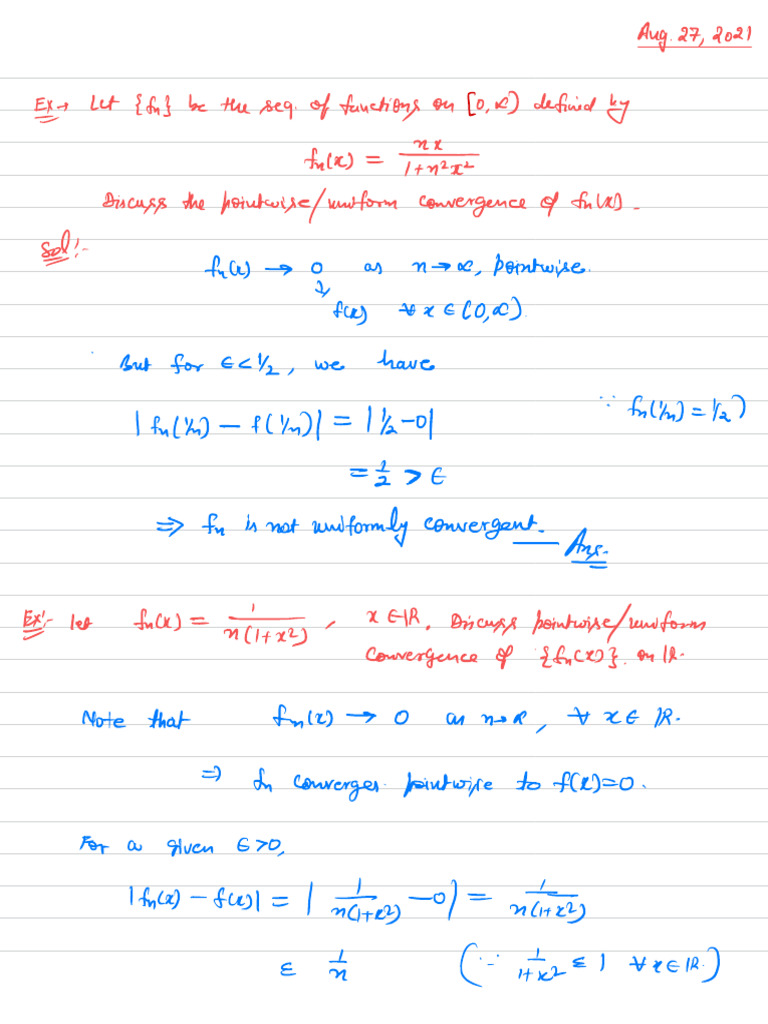 Aug. 27, 2021
Ex→ Let {fn} be the seq. of functions on [0,∞) defined by
fn(x) = nx / 1+n²x²
Discuss the pointwise/uniform convergence of fn(x).
Sol!-
fn(x) → 0 as n→∞, pointwise.
↓ f(x) ∀ x ∈ (0,∞).
But for ε<1/2, we have
|fn(1/n) − f(1/n)| = |1/2−0| ∵ fn(1/n) = 1/2)
= 1/2 > ε
⇒ fn is not uniformly convergent. Ans.
Ex!- let fn(x) = 1 / n(1+x²), x∈ℝ. Discuss pointwise/uniform
convergence of {fn(x)}. on ℝ.
Note that fn(x) → 0 as n→∞, ∀ x∈ ℝ.
⇒ fn converges pointwise to f(x)=0.
For a given ε>0,
|fn(x) − f(x)| = | 1 / n(1+x²) −0| = 1 / n(1+x²)
≤ 1/n (∵ 1 / 1+x² ≤ 1 ∀ x∈ℝ.)